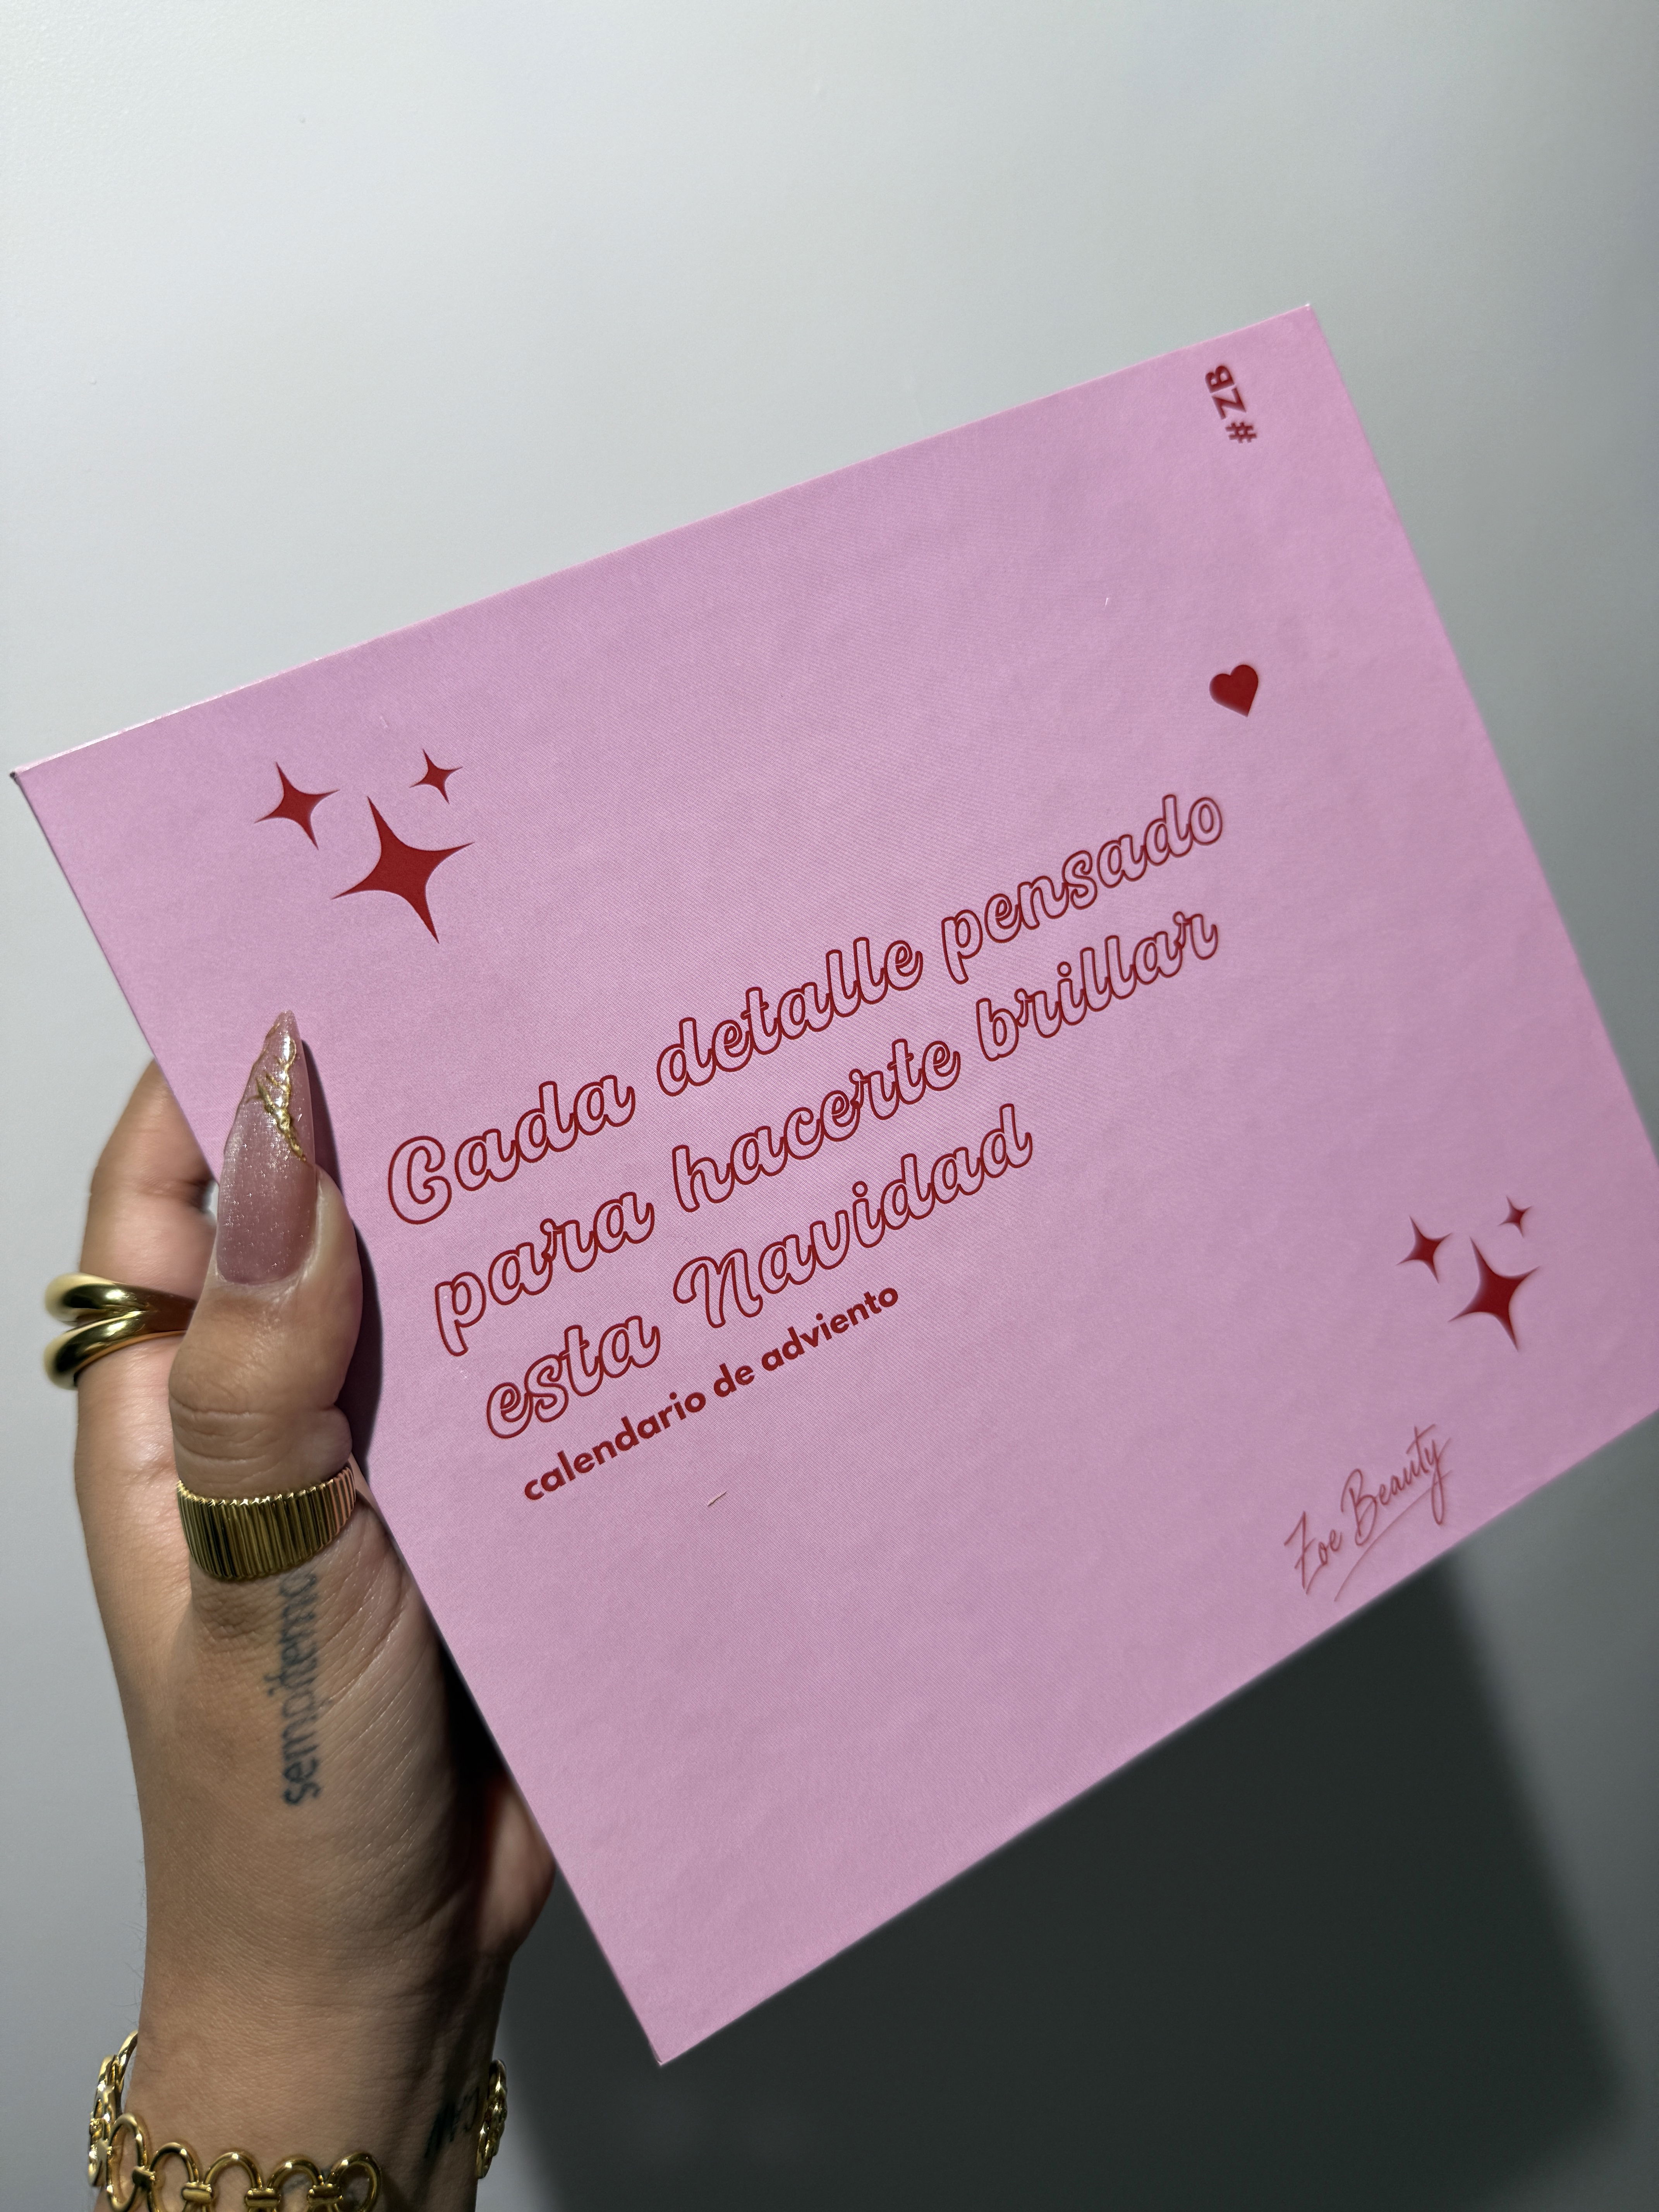 #ZB
Cada detalle pensado
para hacerte brillar
esta Navidad
calendario de adviento
Zoe Beauty
sempiterno